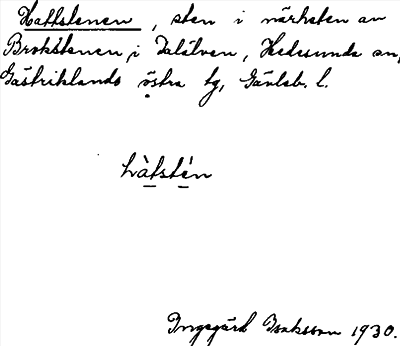 Hattstenen, sten i närheten av
Brokstenen, i Dalälven, Hedesunda sn,
Gästriklands östra tg, Gävleb. l.
hàtstén
Ingegärd Isaksson 1930.